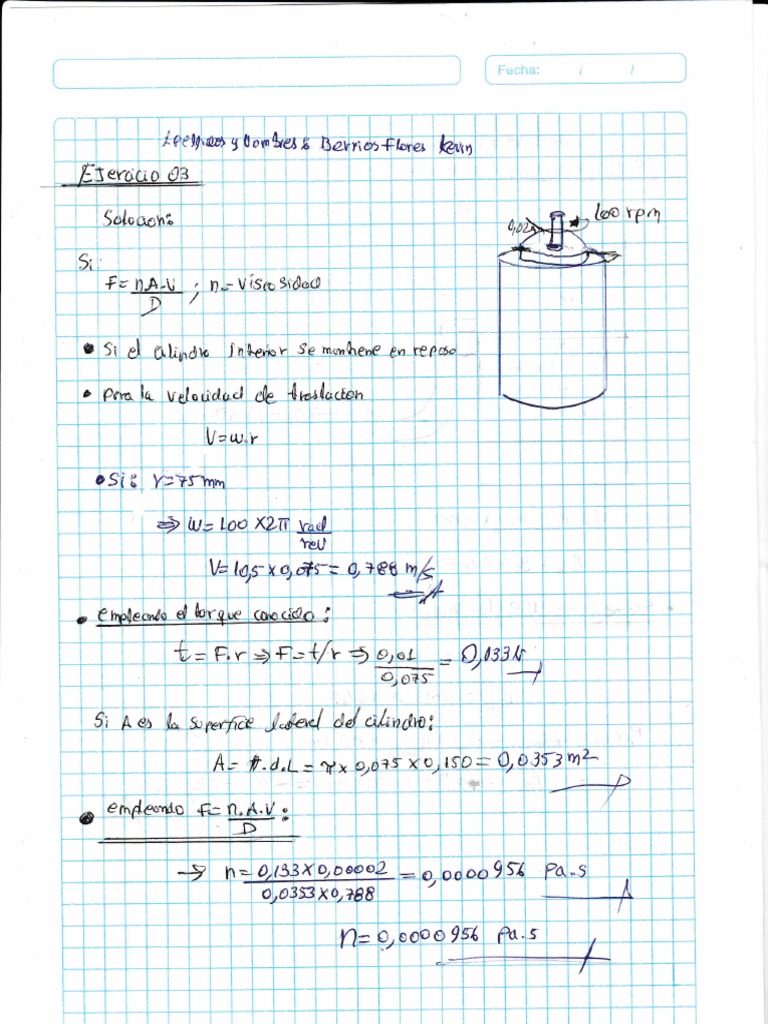 Fecha: / /
y Nombres: Berrios Flores Kevin
Ejercicio 03
Solucion:
0,02
100 rpm
Si:
F = n.A.V / D ; n = Viscosidad
• Si el cilindro interior se mantiene en reposo
• Para la velocidad de traslacion
V = w.r
• Si: r = 75 mm
⇒ w = 100 x 2π rad / rev
V = 10,5 x 0,075 = 0,788 m/s
• empleando el torque conocido:
t = F.r ⇒ F = t/r ⇒ 0,01 / 0,075 = 0,133N
Si A es la superfice lateral del cilindro:
A = π.d.L = π x 0,075 x 0,150 = 0,0353 m²
• empleando F = n.A.V / D :
→ n = 0,133 x 0,00002 / 0,0353 x 0,788 = 0,0000956 Pa.s
n = 0,0000956 Pa.s